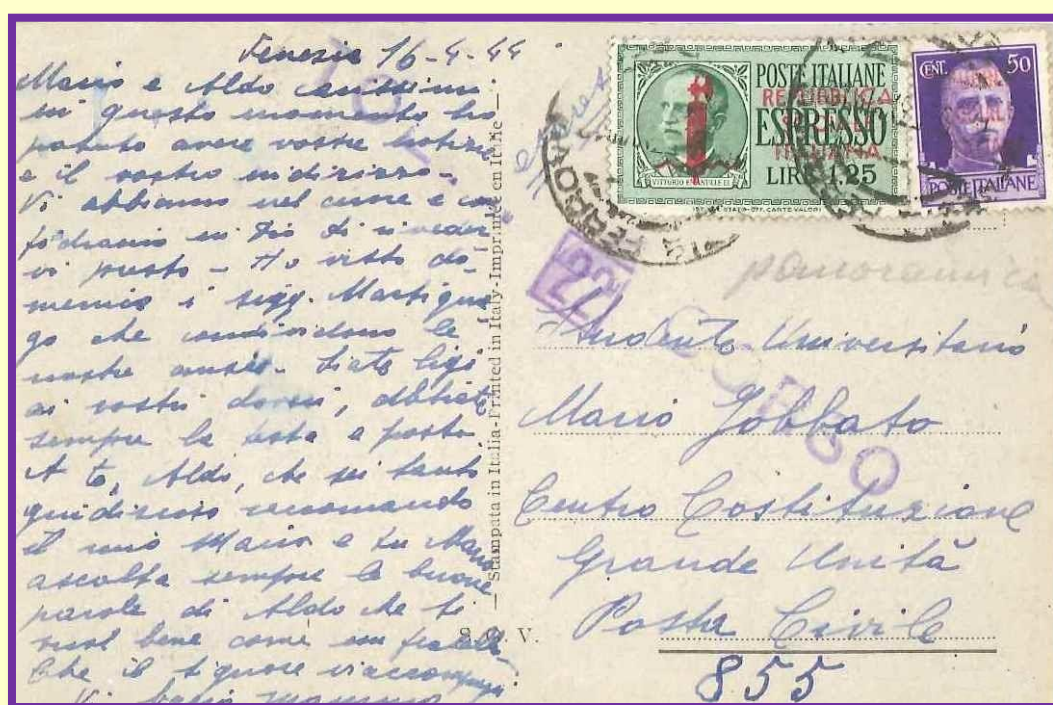 Venezia 16-4-44
Mario e Aldo carissimi
in questo momento ho
potuto avere vostre notizie
e il vostro indirizzo-
Vi abbiamo nel cuore e con
fidiamo in Dio di riveder
vi presto - Ho visto do-
menica i sigg. Martigna
go che condividono le
nostre ansie. Siate ligi
ai vostri doveri, abbiate
sempre la testa a posto
A te, Aldo, che sei tanto
giudizioso raccomando
il mio Mario e tu Mario
ascolta sempre le buone
parole di Aldo che ti
vuol bene come un fratello
Che il Signore vi accompagni
Vi bacio mamma
— Stampata in Italia-Printed in Italy-Imprimée en Italie —
S. V.
POSTE ITALIANE
REPUBBLICA
SOCIALE
ITALIANA
ESPRESSO
LIRE 1.25
VITTORIO EMANUELE III
IST. POL. STATO-OFF. CARTE VALORI
CENT. 50
POSTE ITALIANE
Espresso
22
panoramica
Studente Universitario
Mario Gobbato
Centro Costituzione
Grande Unità
Posta Civile
855